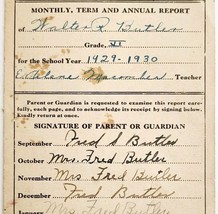 MONTHLY, TERM AND ANNUAL REPORT
of Walter P. Butler
Grade, VI
for the School Year 1929-1930
Macomber Teacher
Parent or Guardian is requested to examine this report carefully,
each page, and to acknowledge its receipt by signing below.
Kindly return at once.
SIGNATURE OF PARENT OR GUARDIAN
September Fred S Butler
October Mrs. Fred Butler
November Mrs Fred Butler
December Fred Butler
January Mrs. Fred Butler